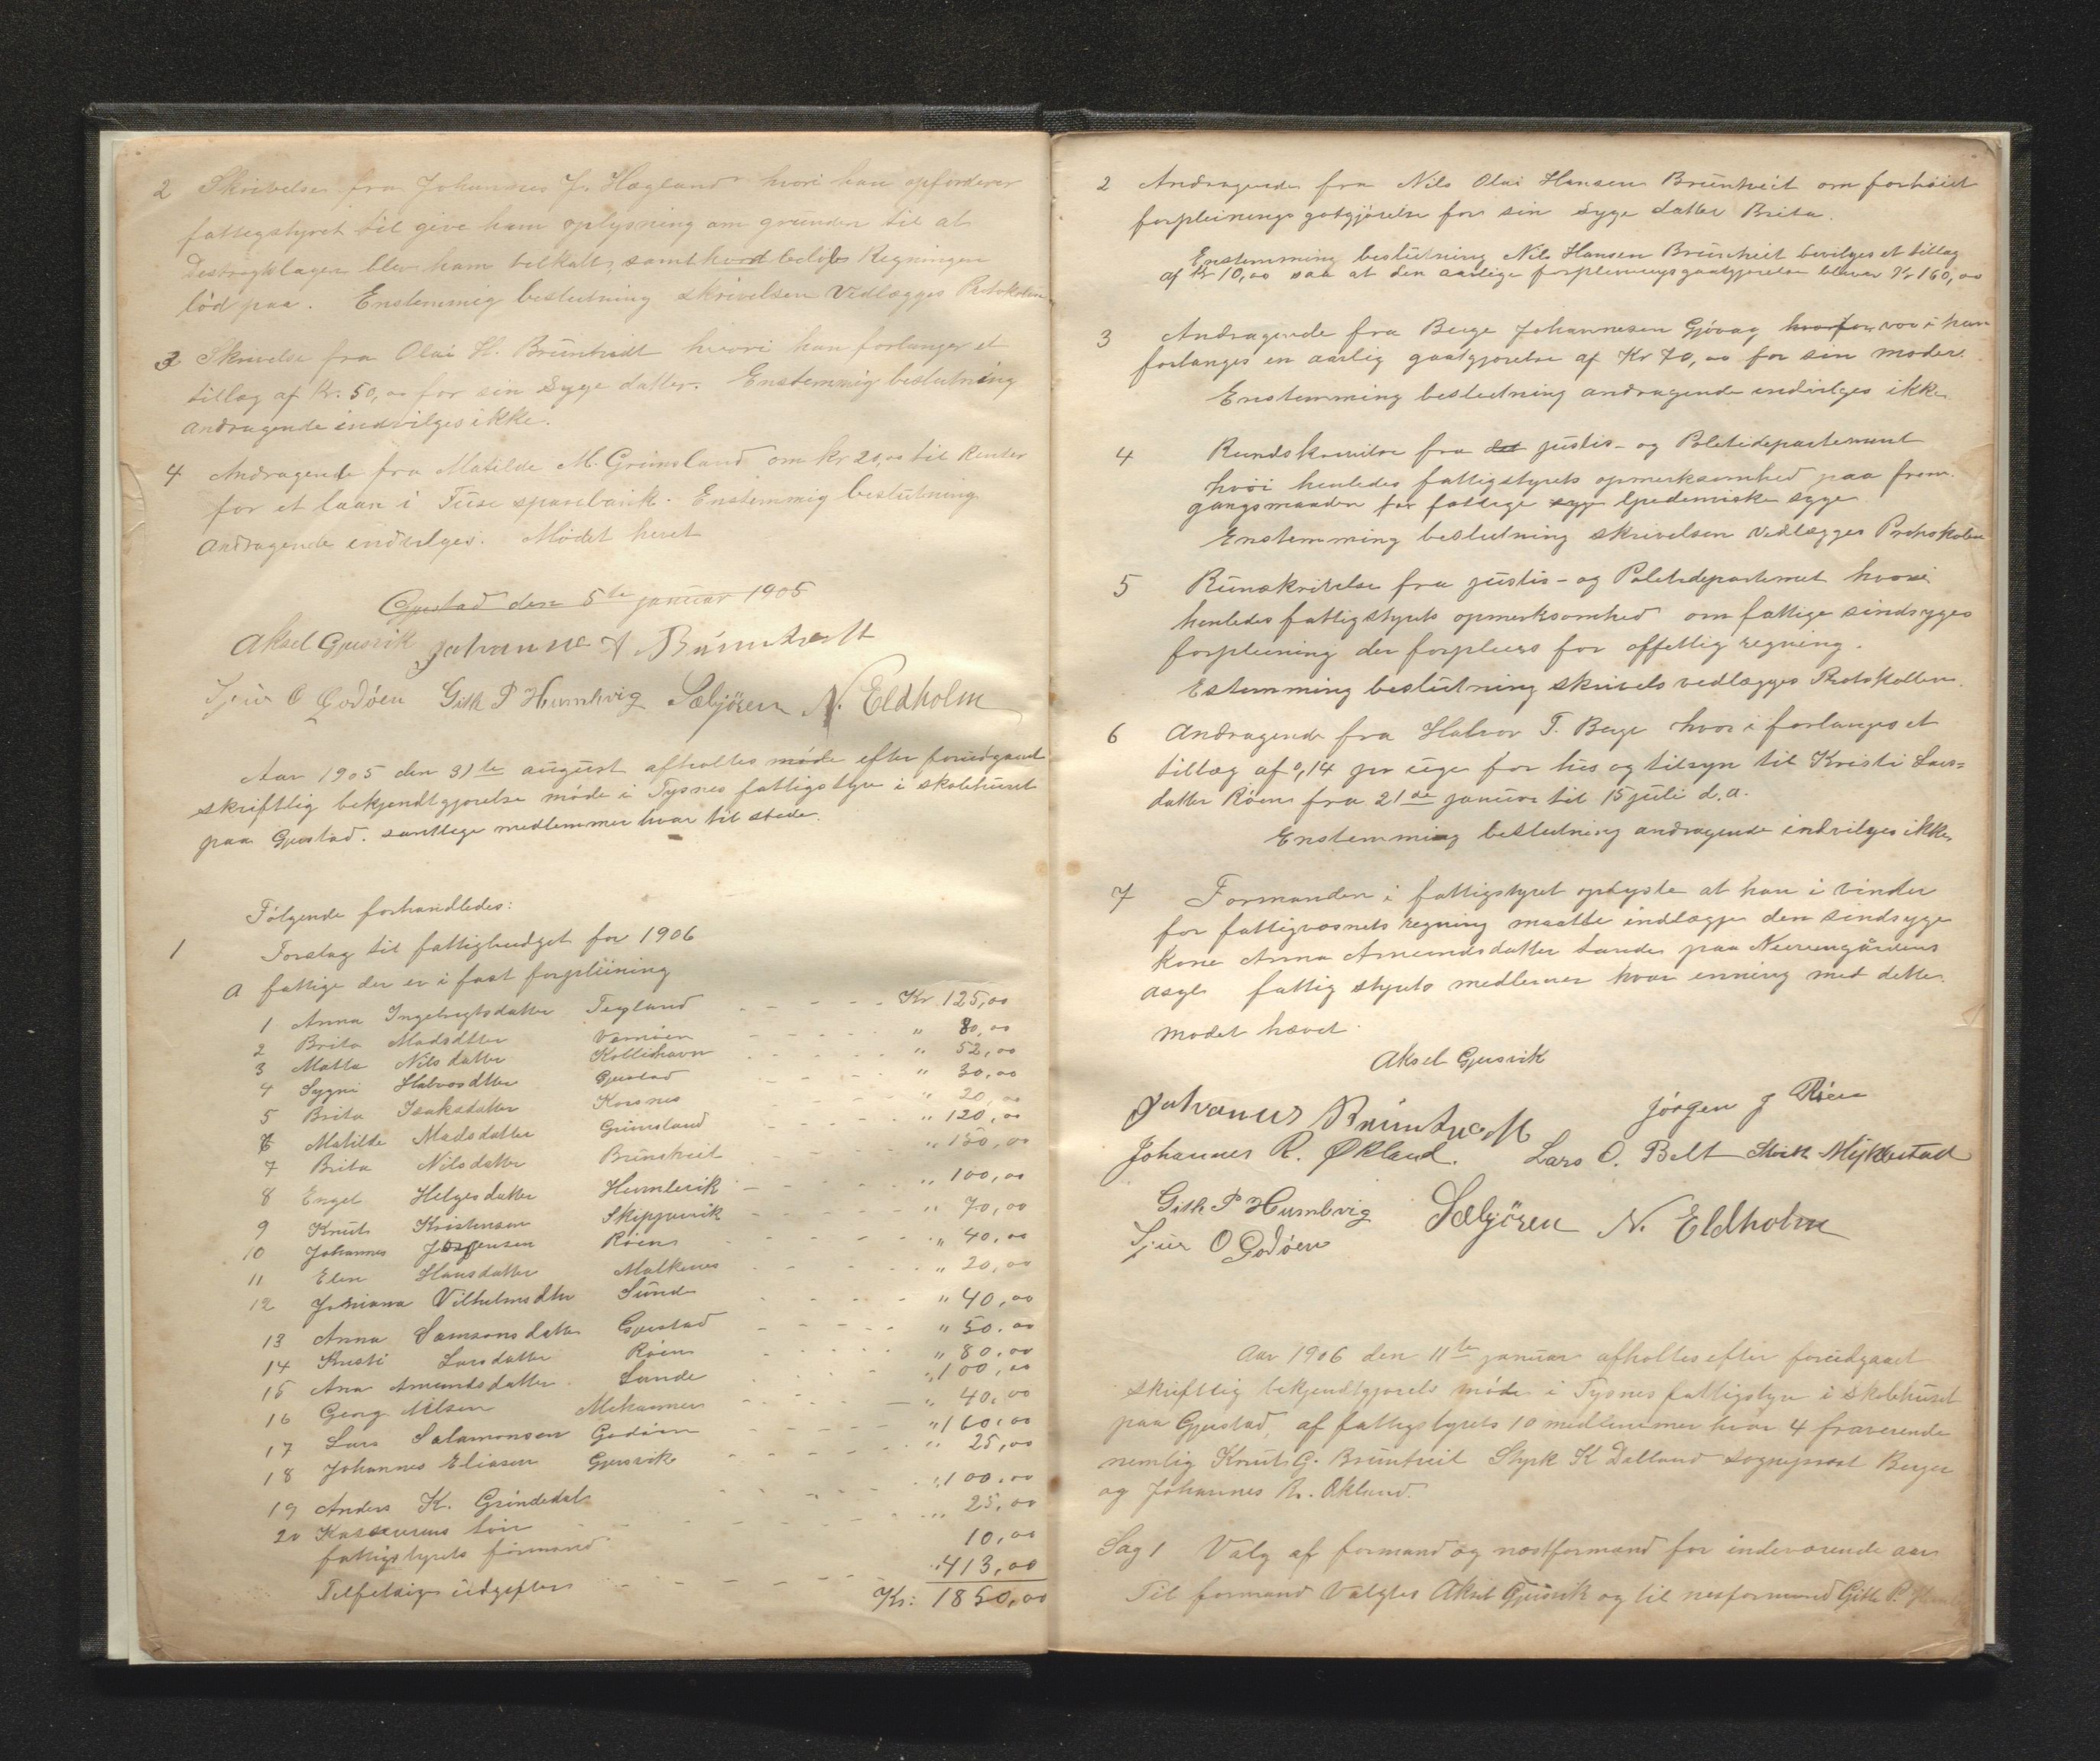 2 Skrivelse fra Johannes J. Hægland hvori han opfordrer
fattigstyret til give ham oplysning om grunden til at
blev ham samt hvad beløb Regningen
lød paa. Enstemmig beslutning skrivelsen Vedlægges Protokolen
3 Skrivelse fra Olai H. Brüntveidt hvori han forlanger et
tillæg af Kr. 50,00 for sin Syge datter. Enstemmig beslutning
andragende indvilges ikke.
4 Andragende fra Matilde M. Grimsland om kr 20,00 til Renter
for et laan i Fuse sparebank. Enstemmig beslutning
andragende indvilges. Mødet hevet
Gjerstad den 5te januar 1905
Aksel Gjersvik Johannes Brüntveidt
Sjur O Godøen Gitle P Humlevig Sæbjörsen N. Eldholm
Aar 1905 den 31te august afholtes møde efter forudgaaet
skriftlig bekjendtgjørelse møde i Tysnes fattigstyre i skolehuset
paa Gjerstad. samtlege medlemmer hvar til stede.
Følgende forhandledes:
1 Forslag til fattigbudget for 1906
a fattige der er i fast forpleining
1 Anna Ingebrigtsdatter Teigland - - - - Kr 125,00
2 Brita Madsdtter Vernøen - - - - " 80,00
3 Matta Nilsdatter Kollichavn - - - - " 52,00
4 Sygni Halvordtter Gjerstad - - - - " 30,00
5 Brita Isaksdatter Korsnes - - - - " 20,00
6 Matilde Madsdatter Grimsland - - - - " 120,00
7 Brita Nilsdatter Brüntveit - - - - " 150,00
8 Engel Helgesdatter Humlevik - - - - " 100,00
9 Knut Kristensen Skipjevik - - - - " 70,00
10 Johannes Jørgensen Røen - - - - " 40,00
11 Elen Hansdatter Malkenes - - - - " 20,00
12 Vilhelmsdtr Sunde - - - - " 40,00
13 Anna Samsonsdatter Gjerstad - - - - " 50.00
14 Kristi Larsdatter Røen - - - - " 80,00
15 Ana Amundsdatter Lande - - - - " 100,00
16 Georg Nilsen - - - - " 40,00
17 Lars Salamonsen Godøen - - - - " 160,00
18 Johannes Eliasen Gjersvik - - - - " 25,00
19 Anders K. Grindedal - - - - " 100,00
20 Kassererens løn - - - - " 25,00
fattigstyrets formand 10,00
Tilfeldige üdgifter - - - - " 413,00
Kr: 1850,00
2 Andragende fra Nils Olai Hansen Brüntveit om forhøiet
forpleinings godtgjørelse for sin syge datter Brita.
Enstemming beslütning Nils Hansen Brüntveit bevilges et tillæg
af Kr 10,00 saa at den aarlige forpleiningsgaatgjørelse bliver Kr 160,00
3 Andragende fra Berge Johannesen Gjövaag hvorfor vori han
forlanges en aarlig gaatgjørelse af Kr 70,00 for sin moder.
Enstemming beslutning andragende indvilges ikke
4 Rundskrivelse fra det justis- og Politidepartement
hvori henledes fattigstyrets opmerksomhed paa frem
gangsmaaden for fattige syge Epedemiske syge
Enstemming beslutning skrivelsen vedlægges Protokolen
5 Rünskrivelse fra justis- og Politidepartemet hvori
henledes fattigstyrets opmerksomhed om fattige sindsyges
forpleining der forpleies for offetlig regning.
Estemming beslütning skrivels vedlægges Protokollen.
6 Andragende fra Halvor T. Berge hvori forlanges et
tillæg af 0,14 pr uge for hus og tilsyn til Kristi Lars=
datter Røen fra 21de januar til 15 juli d.a.
Enstemming beslutning andragende indvilges ikke,
7 Formanden i fattigstyret oplyste at han i vinder
for fattigvæsnets regning maatte indlægge den sindsyge
Kone Anna Amundsdatter Lande paa Neevengaardens
asyl fattig styrets medlemer hvar enning med dette.
mødet hævet.
Aksel Gjersvik
Johannes Brüntveidt Jørgen J Røen
Johannes R. Økland. Lars O. Belt Mykkestad
Gitle P Humlevig Sæbjörsen N. Eldholm
Sjur O Godøen
Aar 1906 den 11te januar afholtes efter forudgaaet
skriftlig bekjendtgjørels møde i Tysnes fattigstyre i skolehuset
paa Gjerstad, af fattigstyrets 10 medlemmer hvar 4 fraverende
nemlig Knut G. Brüntveit Styrk K Dalland Sogneprest Berger
og Johannes R. Økland.
Sag 1 Valg af formand og næstformand for indeværende aar
Til formand Valgtes Aksel Gjersvik og til nestformand Gitle P.